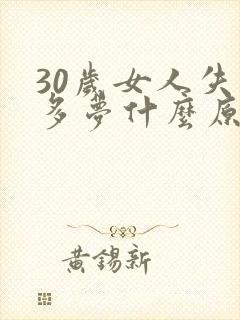 30歲女人失
多夢什麼原
黃錫新